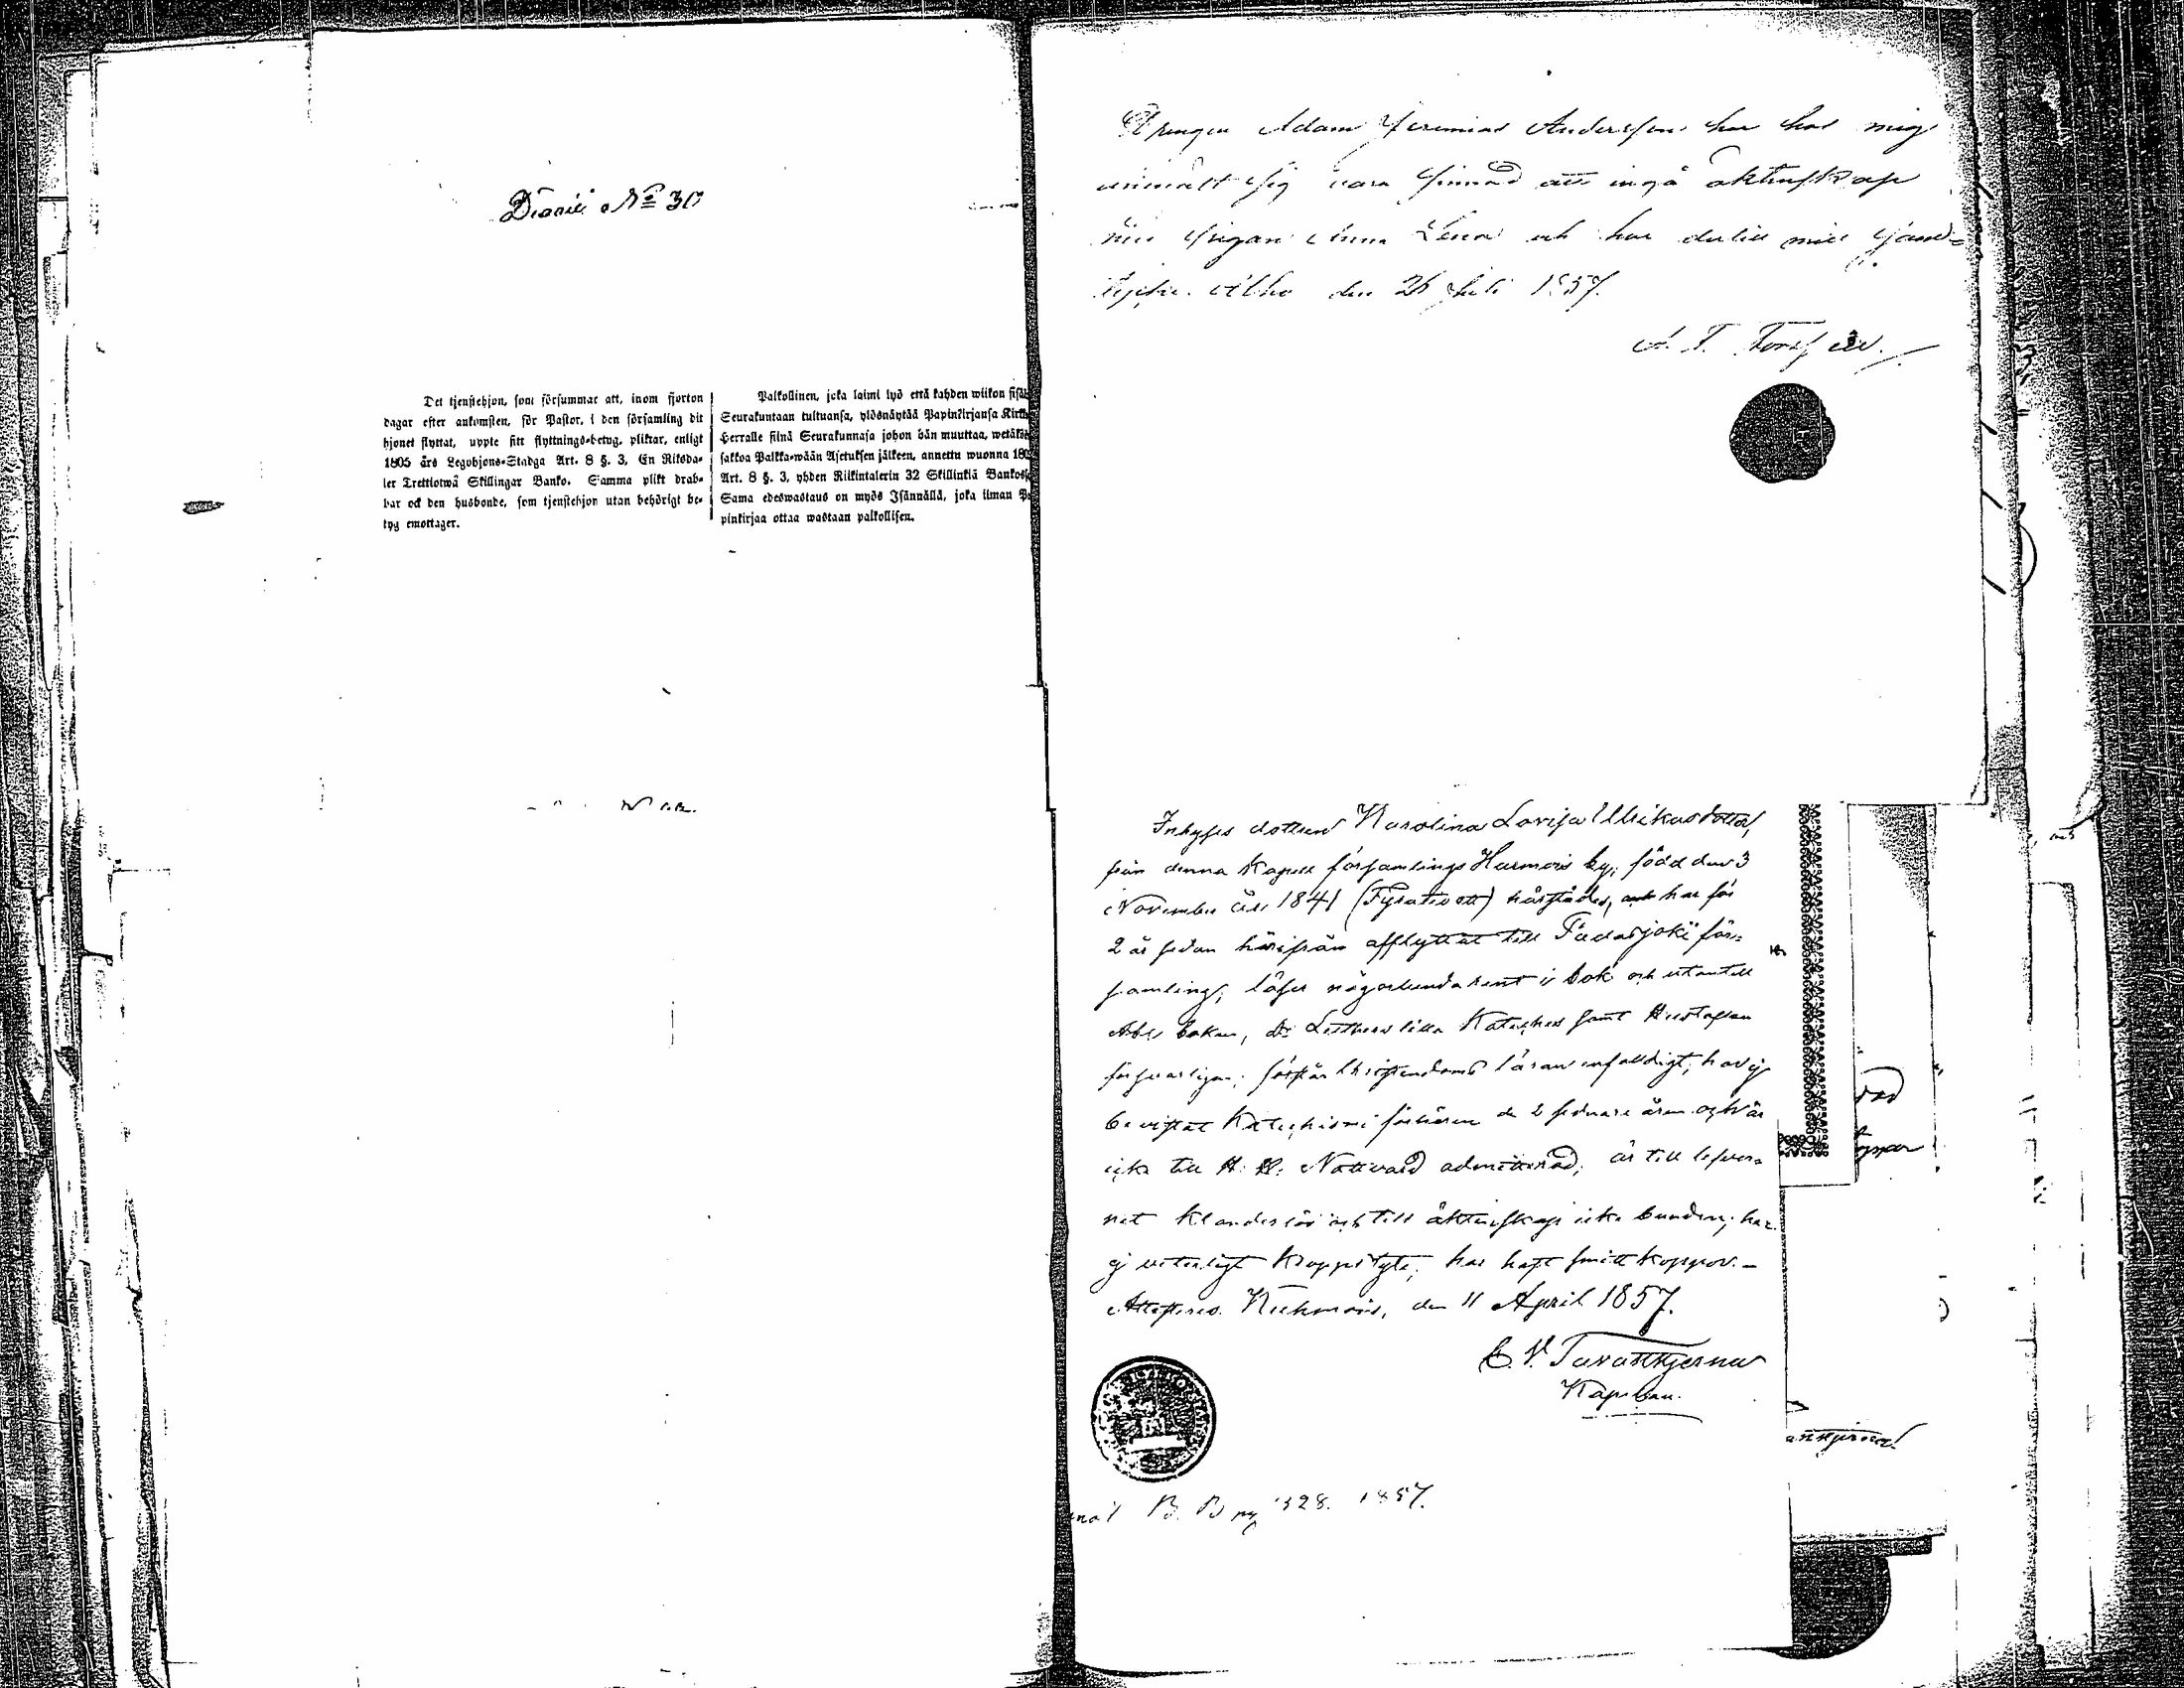 Diarii No 30
Det tjenstehjon, som försummar att, inom fjorton
dagar efter ankomsten, för Pastor, i den församling dit
hjonet flyttat, uppte sitt flyttnings-betyg, pliktar, enligt
1805 års Legohjons-Stadga Art. 8 §. 3, En Riksda-
ler Trettiotwå Skillingar Banko. Samma plikt drab-
bar ock den husbonde, som tjenstehjon utan behörigt be-
tyg emottager.
Palkollinen, joka laimi lyö että kahden wiikon sisä
Seurakuntaan tultuansa, ylösnäytää Papinkirjansa Kirk
Herralle siinä Seurakunnasa johon hän muuttaa, wetäkö
sakkoa Palkka-wään Asetuksen jälkeen, annettu wuonna 180
Art. 8 §. 3, yhden Riikintalerin 32 Skillinkiä Bankos
Sama edeswastaus on myös Isännällä, joka ilman Pa
pinkirjaa ottaa wastaan palkollisen.
Drengen Adam Jeremias Andersson har hos mig
anmält sig vara sinnad att ingå äktenskap
med Pigan Anna Lena och har dertill mitt sam-
tycke. den 26 Juli 1857.
Inhyses dottren Karolina Lovisa Ulrikasdotter,
från denna Kapell församlings Harmois by, född den 3
November året 1841 (Fyratioett) härstädes, har för
2 år sedan härifrån afflyttat till Padasjoki för-
samling; läser någorlunda rent i bok och utantill
Abc boken, Dr Luthers lilla Kateches samt Hustaflan
försvarligen; förstår Christendoms läran enfaldigt, har ej
bevistat Katechismi förhören de 2 sednare åren och är
icke till H. H. Nattvard admitterad; är till lefver-
net klanderlös och till äktenskap icke bunden; har
ej veterligt kroppslyte; har haft smittkoppor.-
Attesteras. Kuhmois, den 11 April 1857.
C. V. Tavaststjerna
Kapellan.
B. B pag 328. 1857.